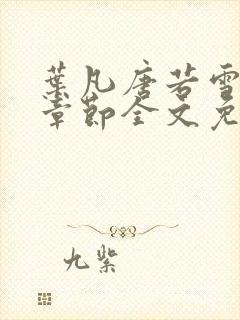 葉凡唐若雪
章節全文免
九紫